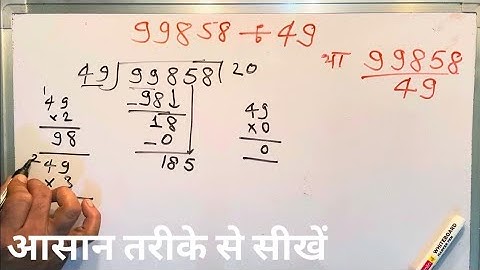 99858 ÷ 49
49)99858(20
या 99858/49
-98
18
-0
185
49
×2
98
49
×3
49
×0
0
आसान तरीके से सीखें
WHITEBOARD